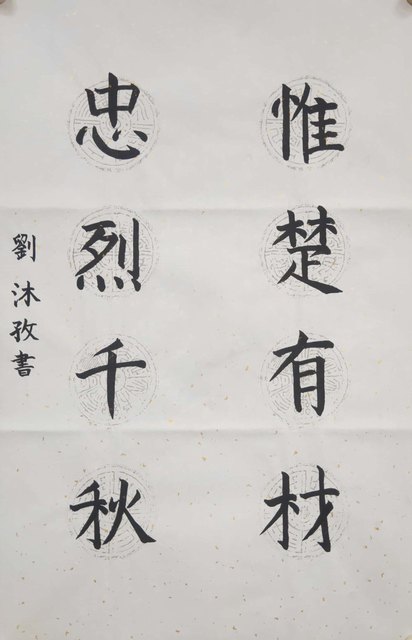 惟楚有材
忠烈千秋
劉沐孜書